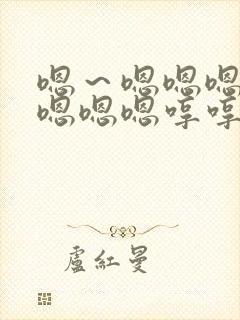 嗯～嗯嗯嗯
嗯嗯嗯哼哼
盧紅曼